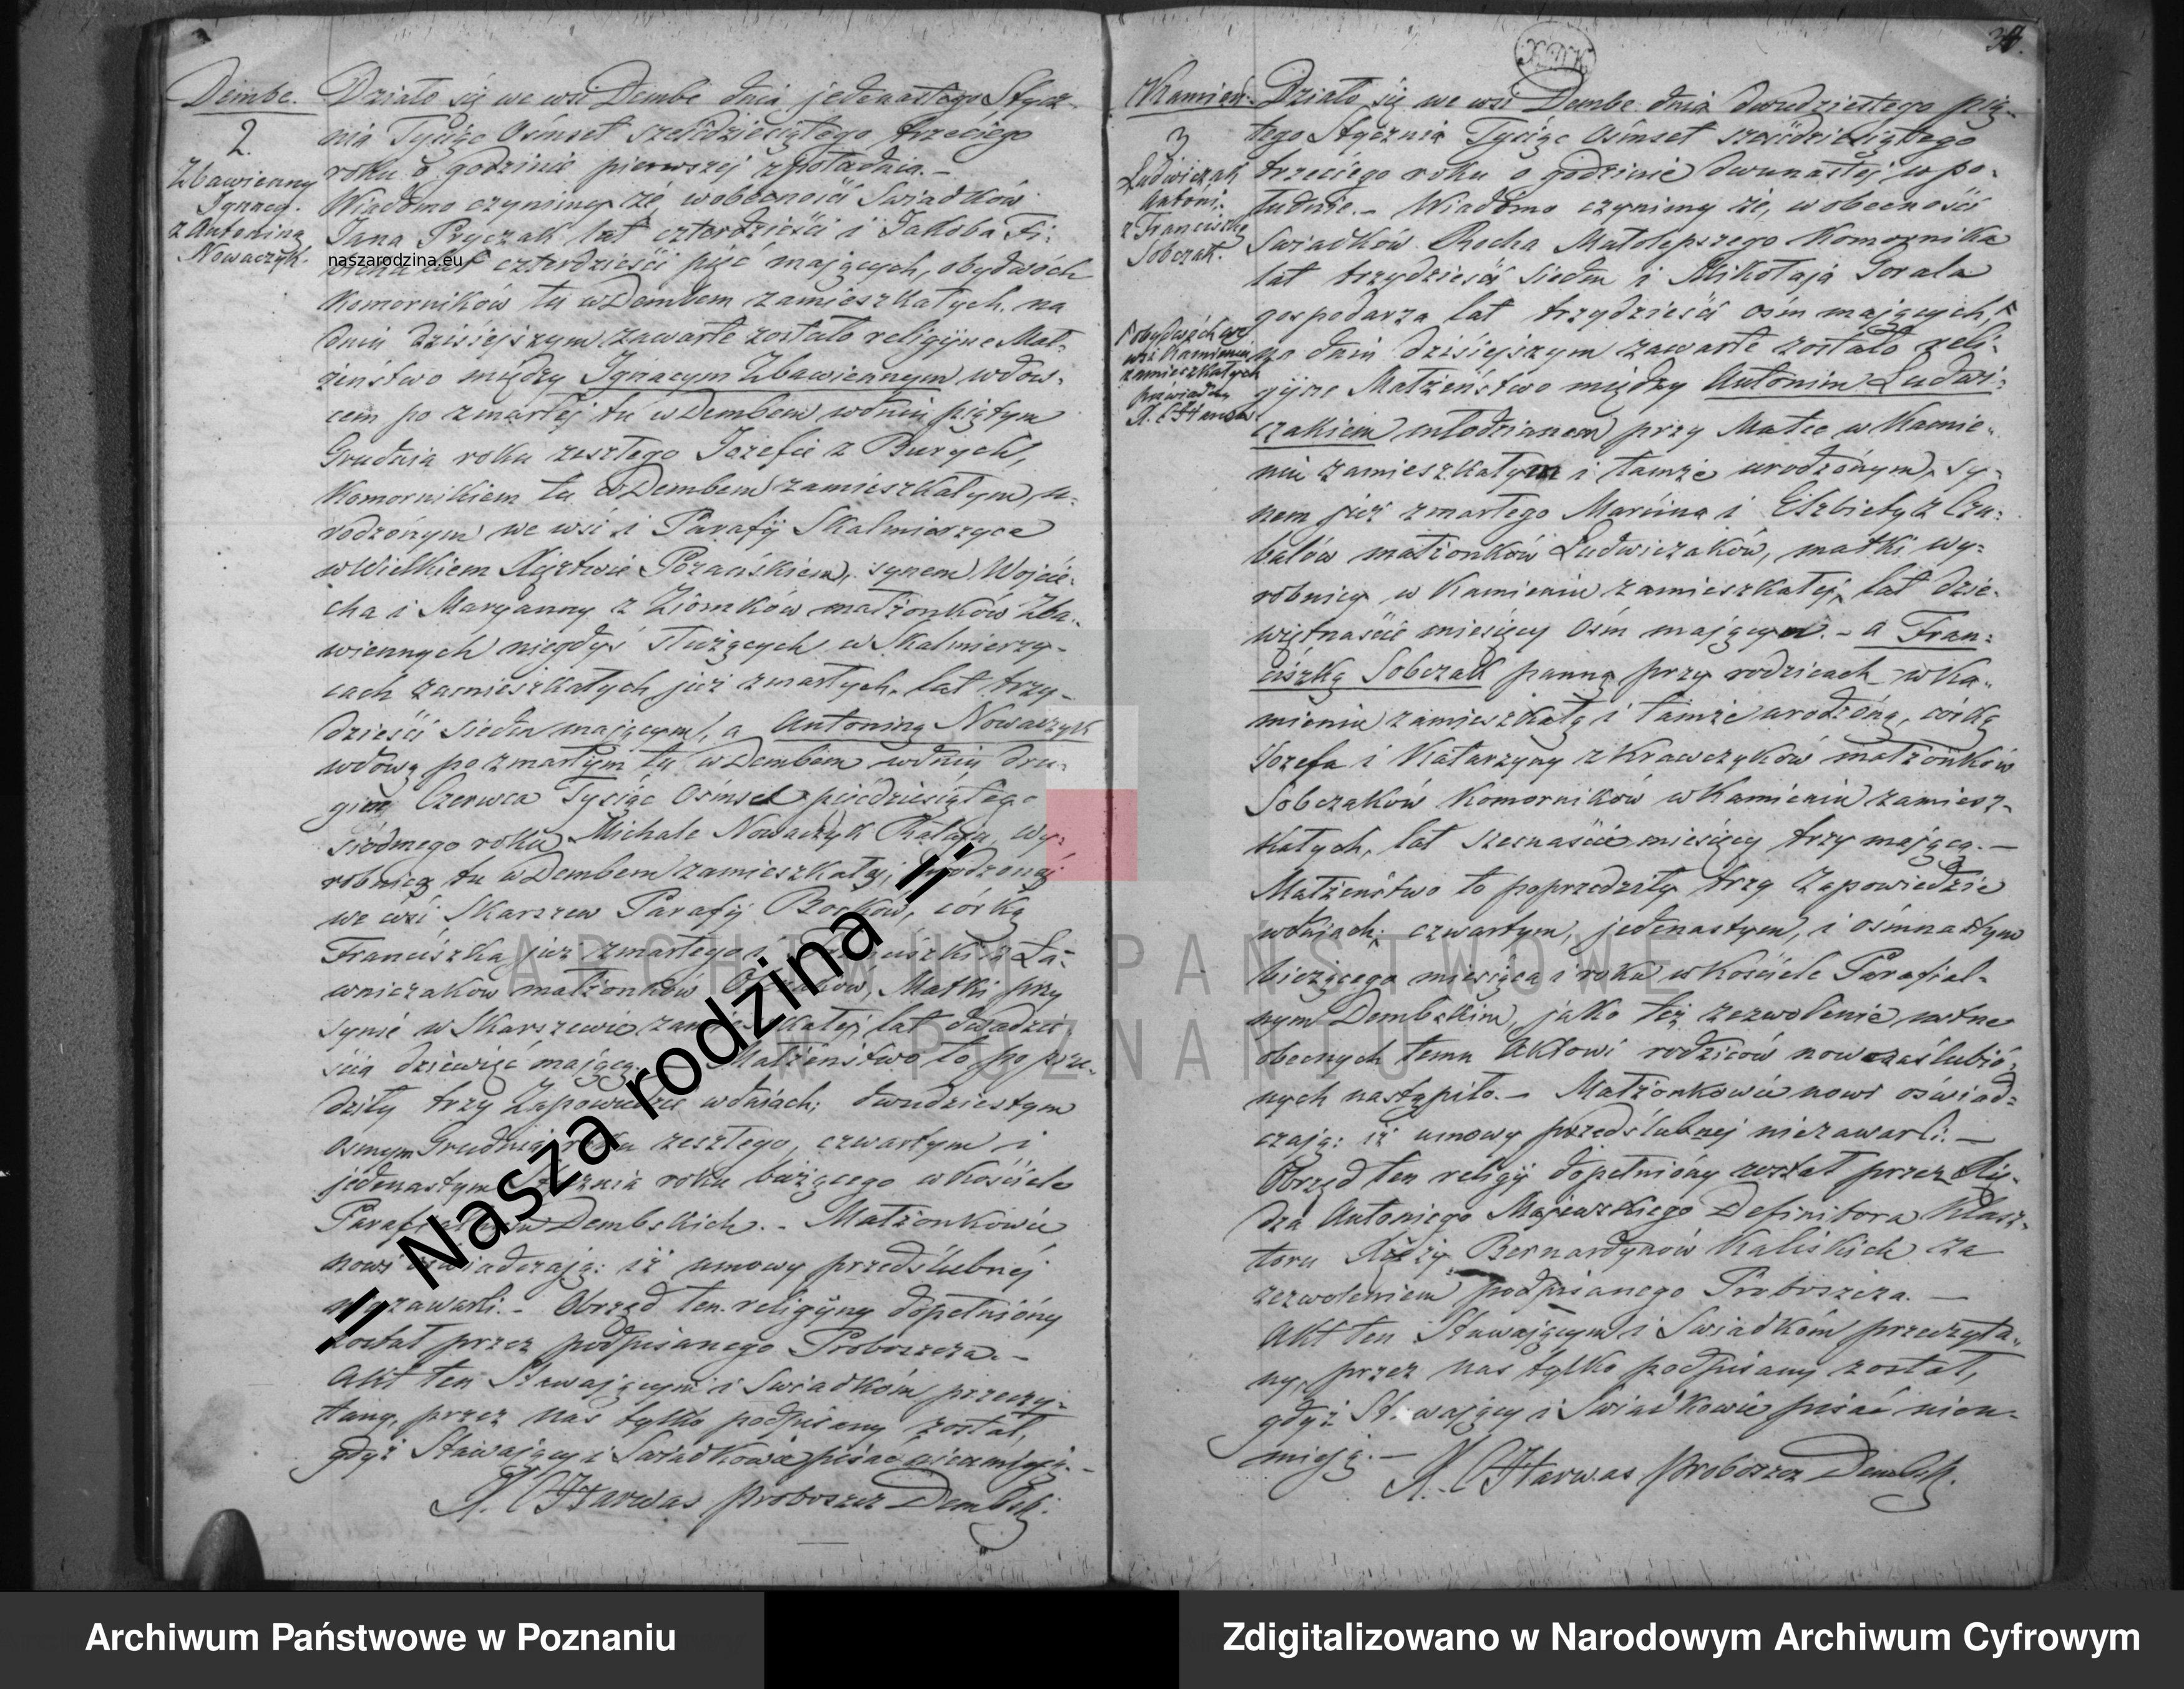 Dembe.
2.
Zbawienny
Ignacy.
z Antoniną
Nowaczyk.
Działo się we wsi Dembe dnia jedenastego Stycz-
nia Tysiąc Ośmset sześćdziesiątego trzeciego
roku o godzinie pierwszej z południa. -
Wiadomo czynimy że w obecności Swiadków
Jana Pryczak lat czterdzieści i Jakóba Fi-
lat czterdzieści pięć mających, obydwóch
Komorników tu w Dembem zamieszkałych, na
dniu dzisiejszym zawarte zostało religijne Mał-
żeństwo między Ignacym Zbawiennym wdow-
cem po zmarłej tu w Dembem w dniu piątym
Grudnia roku zeszłego Józefie z Burych,
Komornikiem tu w Dembem zamieszkałym, u-
rodzonym we wsi i Parafii Skalmierzyce
w Wielkiem Xięztwie Poznańskiem, synem Wojcie-
cha i Maryanny z Ziomków małżonków Zba-
wiennych niegdyś służących w Skalmierzy-
cach zamieszkałych już zmarłych, lat trzy-
dzieści siedm mającym, a Antoniną Nowaczyk
wdową po zmarłym tu w Dembem w dniu dru-
gim Czerwca Tysiąc Ośmset pięćdziesiątego
siódmego roku Michale Nowaczyk wy-
robnicą tu w Dembem zamieszkałą, urodzoną
we wsi Skarszew Parafii Borków, córką
Franciszka już zmarłego i z Ła-
wniczaków małżonków Matki przy
synie w Skarszewie zamieszkałej, lat dwadzie-
ścia dziewięć mającą. Małżeństwo to poprze-
dziły trzy Zapowiedzie w dniach: dwudziestym
osmym Grudnia roku zeszłego, czwartym i
jedenastym Stycznia roku bieżącego w Kościele
Parafialnym Dembskich. - Małżonkowie
nowi oświadczają: iż umowy przedślubnej
niezawarli. - Obrzęd ten religijny dopełniony
został przez podpisanego Proboszcza. -
Akt ten Stawającym i Swiadkóm przeczy-
tany, przez nas tylko podpisany został,
gdyż Stawający i Swiadkowie pisać nieumieją. -
X. Harwas Proboszcz Dembski.
naszarodzina.eu
= Nasza rodzina =
34.
Kamień.
3
Ludwiczak
Antoni.
z Franciszką
Sobczak.
Działo się we wsi Dembe dnia dwudziestego pią-
tego Stycznia Tysiąc Ośmset sześćdziesiątego
trzeciego roku o godzinie dwunastej w po-
łudnie. - Wiadomo czynimy że, w obecności
Swiadków Rocha Małolepszego Komornika
lat trzydzieści siedm i Mikołaja Gorala
gospodarza lat trzydzieści ośm mających,
obydwóch we
wsi Kamieniu
zamieszkałych
na dniu dzisiejszym zawarte zostało reli-
gijne Małżeństwo między Antonim Ludwi-
czakiem młodzianem przy Matce w Kamie-
niu zamieszkałym i tamże urodzonym, sy-
nem już zmarłego Marcina i Elżbiety z Czu-
bałów małżonków Ludwiczaków, matki wy-
robnicy w Kamieniu zamieszkałej, lat dzie-
więtnaście miesięcy Ośm mającym. - a Fran-
ciszką Sobczak panną przy rodzicach w Ka-
mieniu zamieszkałą i tamże urodzoną, córką
Józefa i Katarzyny z Krawczyków małżonków
Sobczaków Komorników w Kamieniu zamiesz-
kałych, lat szesnaście miesięcy trzy mającą. -
Małżeństwo to poprzedziły trzy Zapowiedzie
w dniach; czwartym, jedenastym, i ośmnastym
bieżącego miesiąca i roku w Kościele Parafial-
nym Dembskim, jako też zezwolenie ustne
obecnych temu Aktowi rodziców nowozaślubio-
nych nastąpiło. - Małżonkowie nowi oświad-
czają: iż umowy przedślubnej niezawarli. -
Obrzęd ten religij dopełniony został przez Xię-
dza Antoniego Majewskiego Definitora Klasz-
toru Xięży Bernardynów Kaliskich za
zezwoleniem podpisanego Proboszcza. -
Akt ten Stawającym i Swiadkóm przeczyta-
ny, przez nas tylko podpisany został,
gdyż Stawający i Swiadkowie pisać nieu-
mieją. -
X. Harwas Proboszcz Dembsk.
ARCHIWUM PAŃSTWOWE
W POZNANIU
Archiwum Państwowe w Poznaniu
Zdigitalizowano w Narodowym Archiwum Cyfrowym